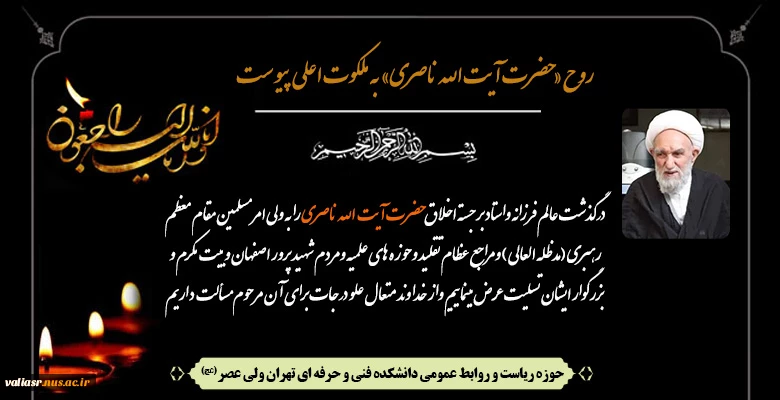 روح «حضرت آیت الله ناصری» به ملکوت اعلی پیوست
انا لله و انا الیه راجعون
بسم الله الرحمن الرحیم
درگذشت عالم فرزانه و استاد برجسته اخلاق حضرت آیت الله ناصری را به ولی امر مسلمین مقام معظم
رهبری (مدظله العالی) و مراجع عظام تقلید و حوزه های علمیه و مردم شهید پرور اصفهان و بیت مکرم و
بزرگوار ایشان تسلیت عرض مینماییم و از خداوند متعال علو درجات برای آن مرحوم مسألت داریم
حوزه ریاست و روابط عمومی دانشکده فنی و حرفه ای تهران ولی عصر (عج)
valiasr.nus.ac.ir